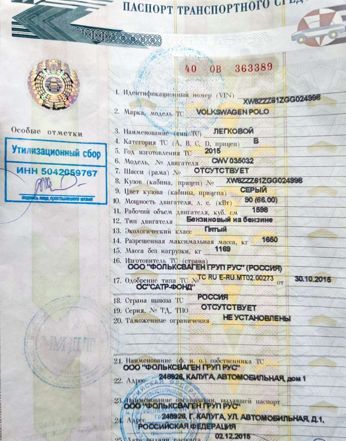 ПАСПОРТ ТРАНСПОРТНОГО СРЕД
40 ОВ 363389
1. Идентификационный номер (VIN) XW8ZZZ61ZGG024998
2. Марка, модель ТС VOLKSWAGEN POLO
Особые отметки
3. Наименование (тип ТС) ЛЕГКОВОЙ
4. Категория ТС (А, В, С, D, прицеп) B
Утилизационный сбор
5. Год изготовления ТС 2015
ИНН 5042059767
6. Модель, № двигателя CWV 035032
7. Шасси (рама) № ОТСУТСТВУЕТ
8. Кузов (кабина, прицеп) № XW8ZZZ61ZGG024998
9. Цвет кузова (кабины, прицепа) СЕРЫЙ
10. Мощность двигателя, л. с. (кВт) 90 (66.00)
11. Рабочий объем двигателя, куб. см 1598
12. Тип двигателя Бензиновый на бензине
13. Экологический класс Пятый
14. Разрешенная максимальная масса, кг 1660
15. Масса без нагрузки, кг 1169
16. Изготовитель ТС (страна)
ООО "ФОЛЬКСВАГЕН ГРУП РУС" (РОССИЯ)
17. Одобрение типа ТС № ТС RU E-RU.MT02.00273 от 30.10.2015
ОС "САТР-ФОНД"
18. Страна вывоза ТС РОССИЯ
19. Серия, № ТД, ТПО ОТСУТСТВУЕТ
20. Таможенные ограничения НЕ УСТАНОВЛЕНЫ
21. Наименование (ф. и. о.) собственника ТС
ООО "ФОЛЬКСВАГЕН ГРУП РУС"
22. Адрес 248926, КАЛУГА, АВТОМОБИЛЬНАЯ, дом 1
23. Наименование организации, выдавшей паспорт
ООО "ФОЛЬКСВАГЕН ГРУП РУС"
24. Адрес 248926, Г. КАЛУГА, УЛ. АВТОМОБИЛЬНАЯ, Д.1,
РОССИЙСКАЯ ФЕДЕРАЦИЯ
02.12.2015